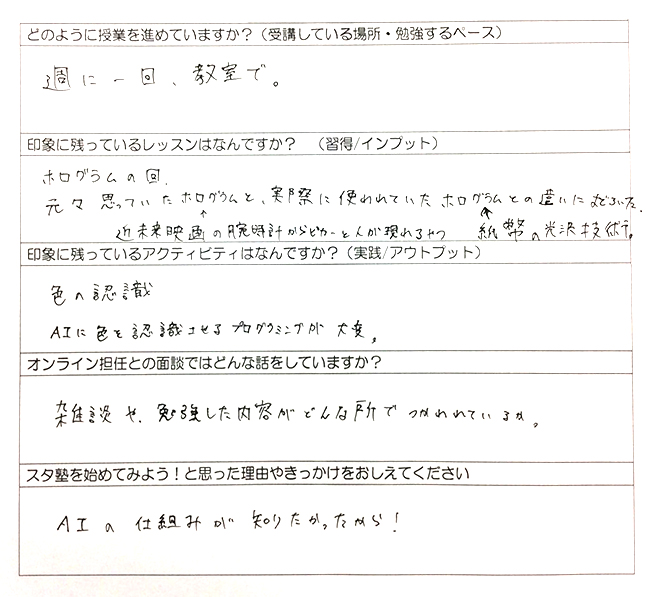 どのように授業を進めていますか？（受講している場所・勉強するペース）
週に一回、教室で。
印象に残っているレッスンはなんですか？　（習得/インプット）
ホログラムの回、
元々思っていたホログラムと、実際に使われていたホログラムとの違いにおどろいた。
近未来映画の腕時計からピカーと人が現れるやつ　紙幣の光沢技術。
印象に残っているアクティビティはなんですか？（実践/アウトプット）
色の認識
AIに色を認識させるプログラミングが大変。
オンライン担任との面談ではどんな話をしていますか？
雑談や、勉強した内容がどんな所でつかわれているか。
スタ塾を始めてみよう！と思った理由やきっかけをおしえてください
AIの仕組みが知りたかったから！